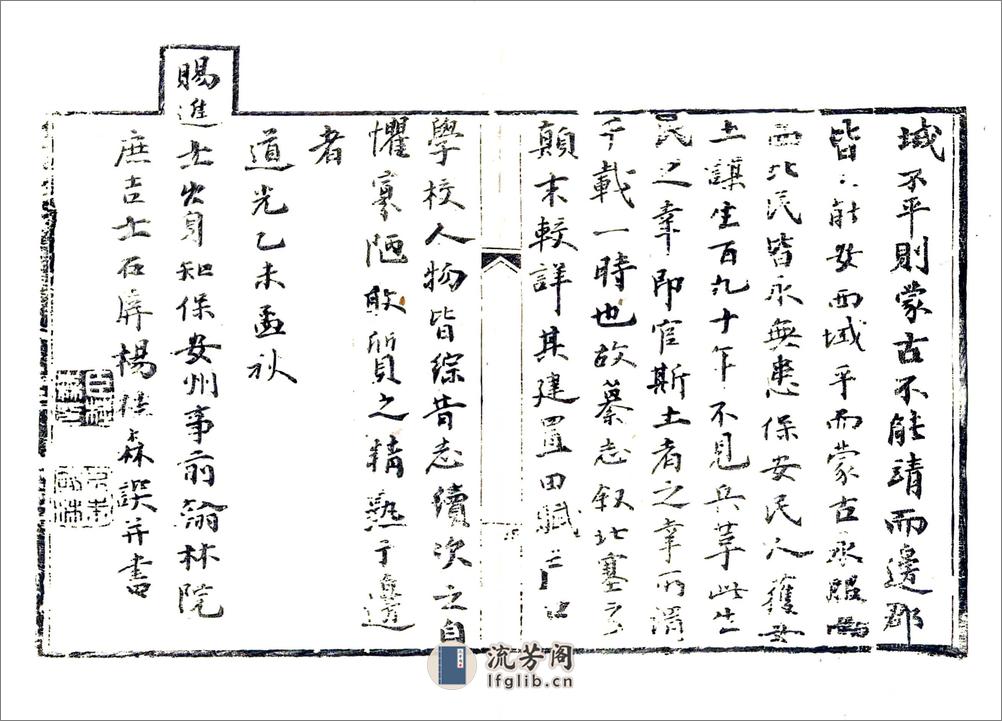 域不平則蒙古不能靖而邊郡
皆不能安西域平而蒙古永服
西北民皆永無患保安民人獲安
土謀生百九十年不見兵革此生
民之幸即官斯土者之幸所謂
千載一時也故纂志叙北塞之
顛末較詳其建置田賦户口
學校人物皆綜昔志續次之自
懼寡陋敢質之精熟于邊
者
道光乙未孟秋
賜進士出身知保安州事前翰林院
庶吉士石屏楊桂森譔并書
流芳阁
lfglib.cn